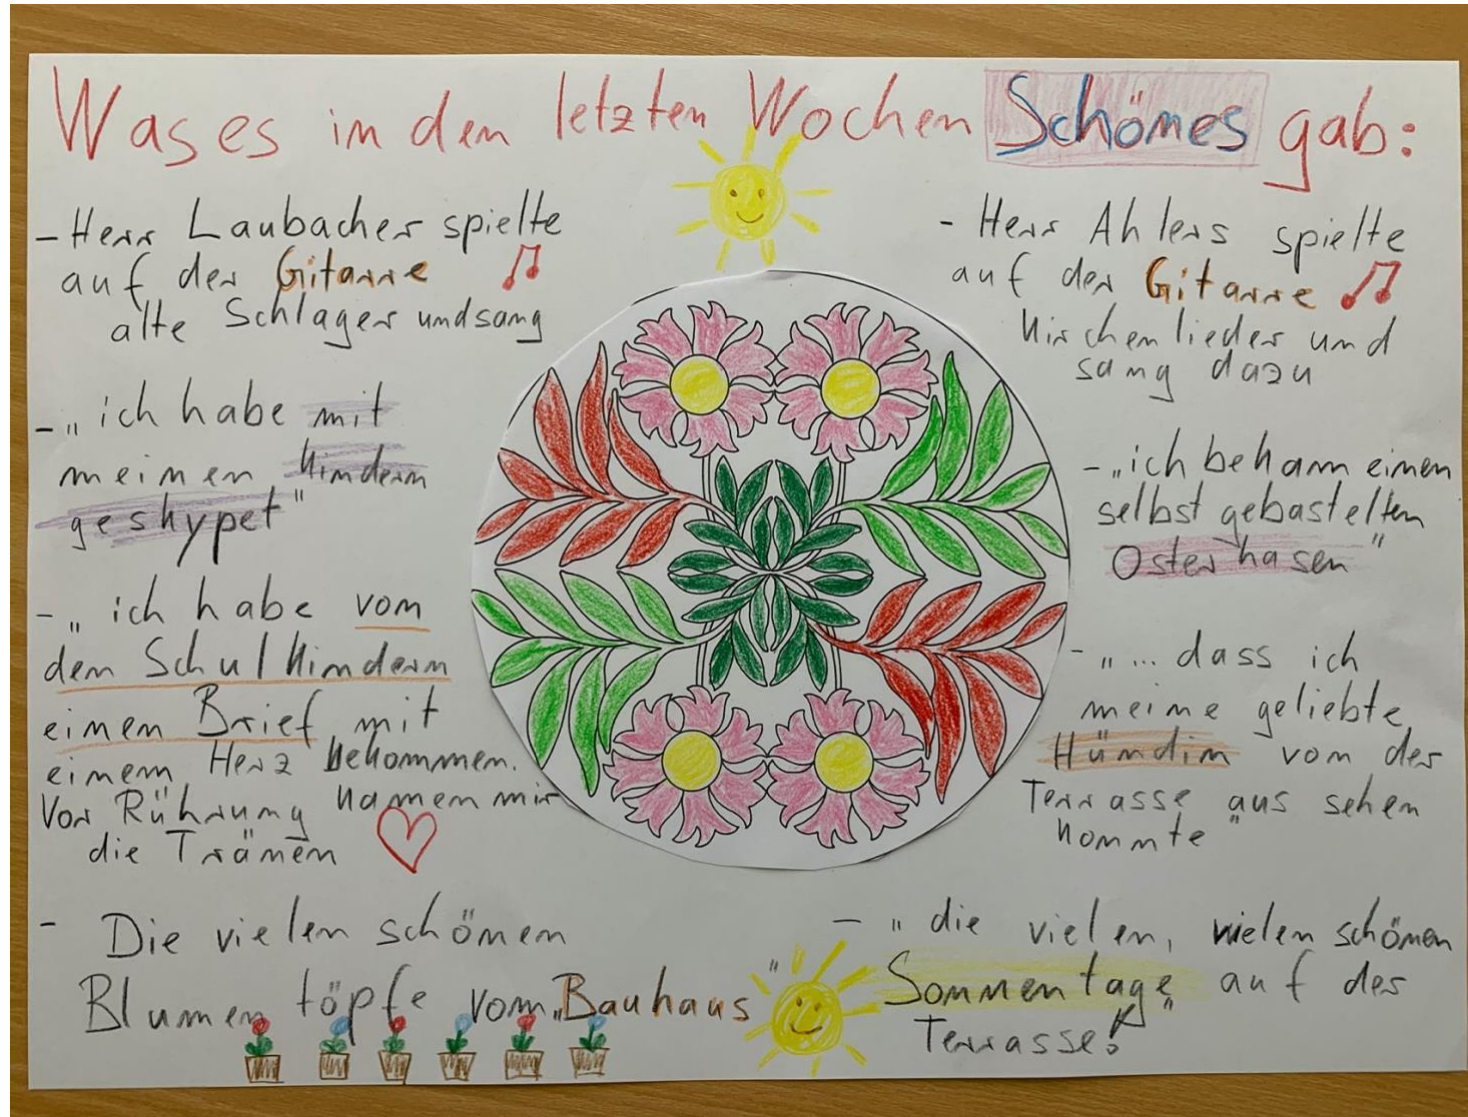 Was es in den letzten Wochen Schönes gab:
- Herr Laubacher spielte
auf der Gitarre
alte Schlager und sang
- „ich habe mit
meinen Kindern
geskypet"
- „ich habe von
den Schulkindern
einen Brief mit
einem Herz bekommen.
Vor Rührung kamen mir
die Tränen
- Die vielen schönen
Blumentöpfe vom „Bauhaus"
- Herr Ahlers spielte
auf der Gitarre
Kirchenlieder und
sang dazu
- „ich bekam einen
selbst gebastelten
Osterhasen"
- „... dass ich
meine geliebte
Hündin von der
Terrasse aus sehen
konnte"
- „die vielen, vielen schönen
Sonnentage auf der
Terrasse"